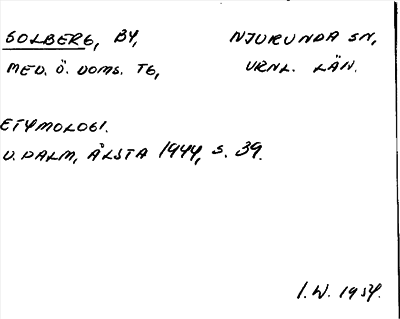 SOLBERG, BY, NJURUNDA SN,
MED. Ö. DOMS. TG, VRNL. LÄN.
ETYMOLOGI.
V. PALM, ÄLSTA 1944, S. 39.
I. W. 1954.